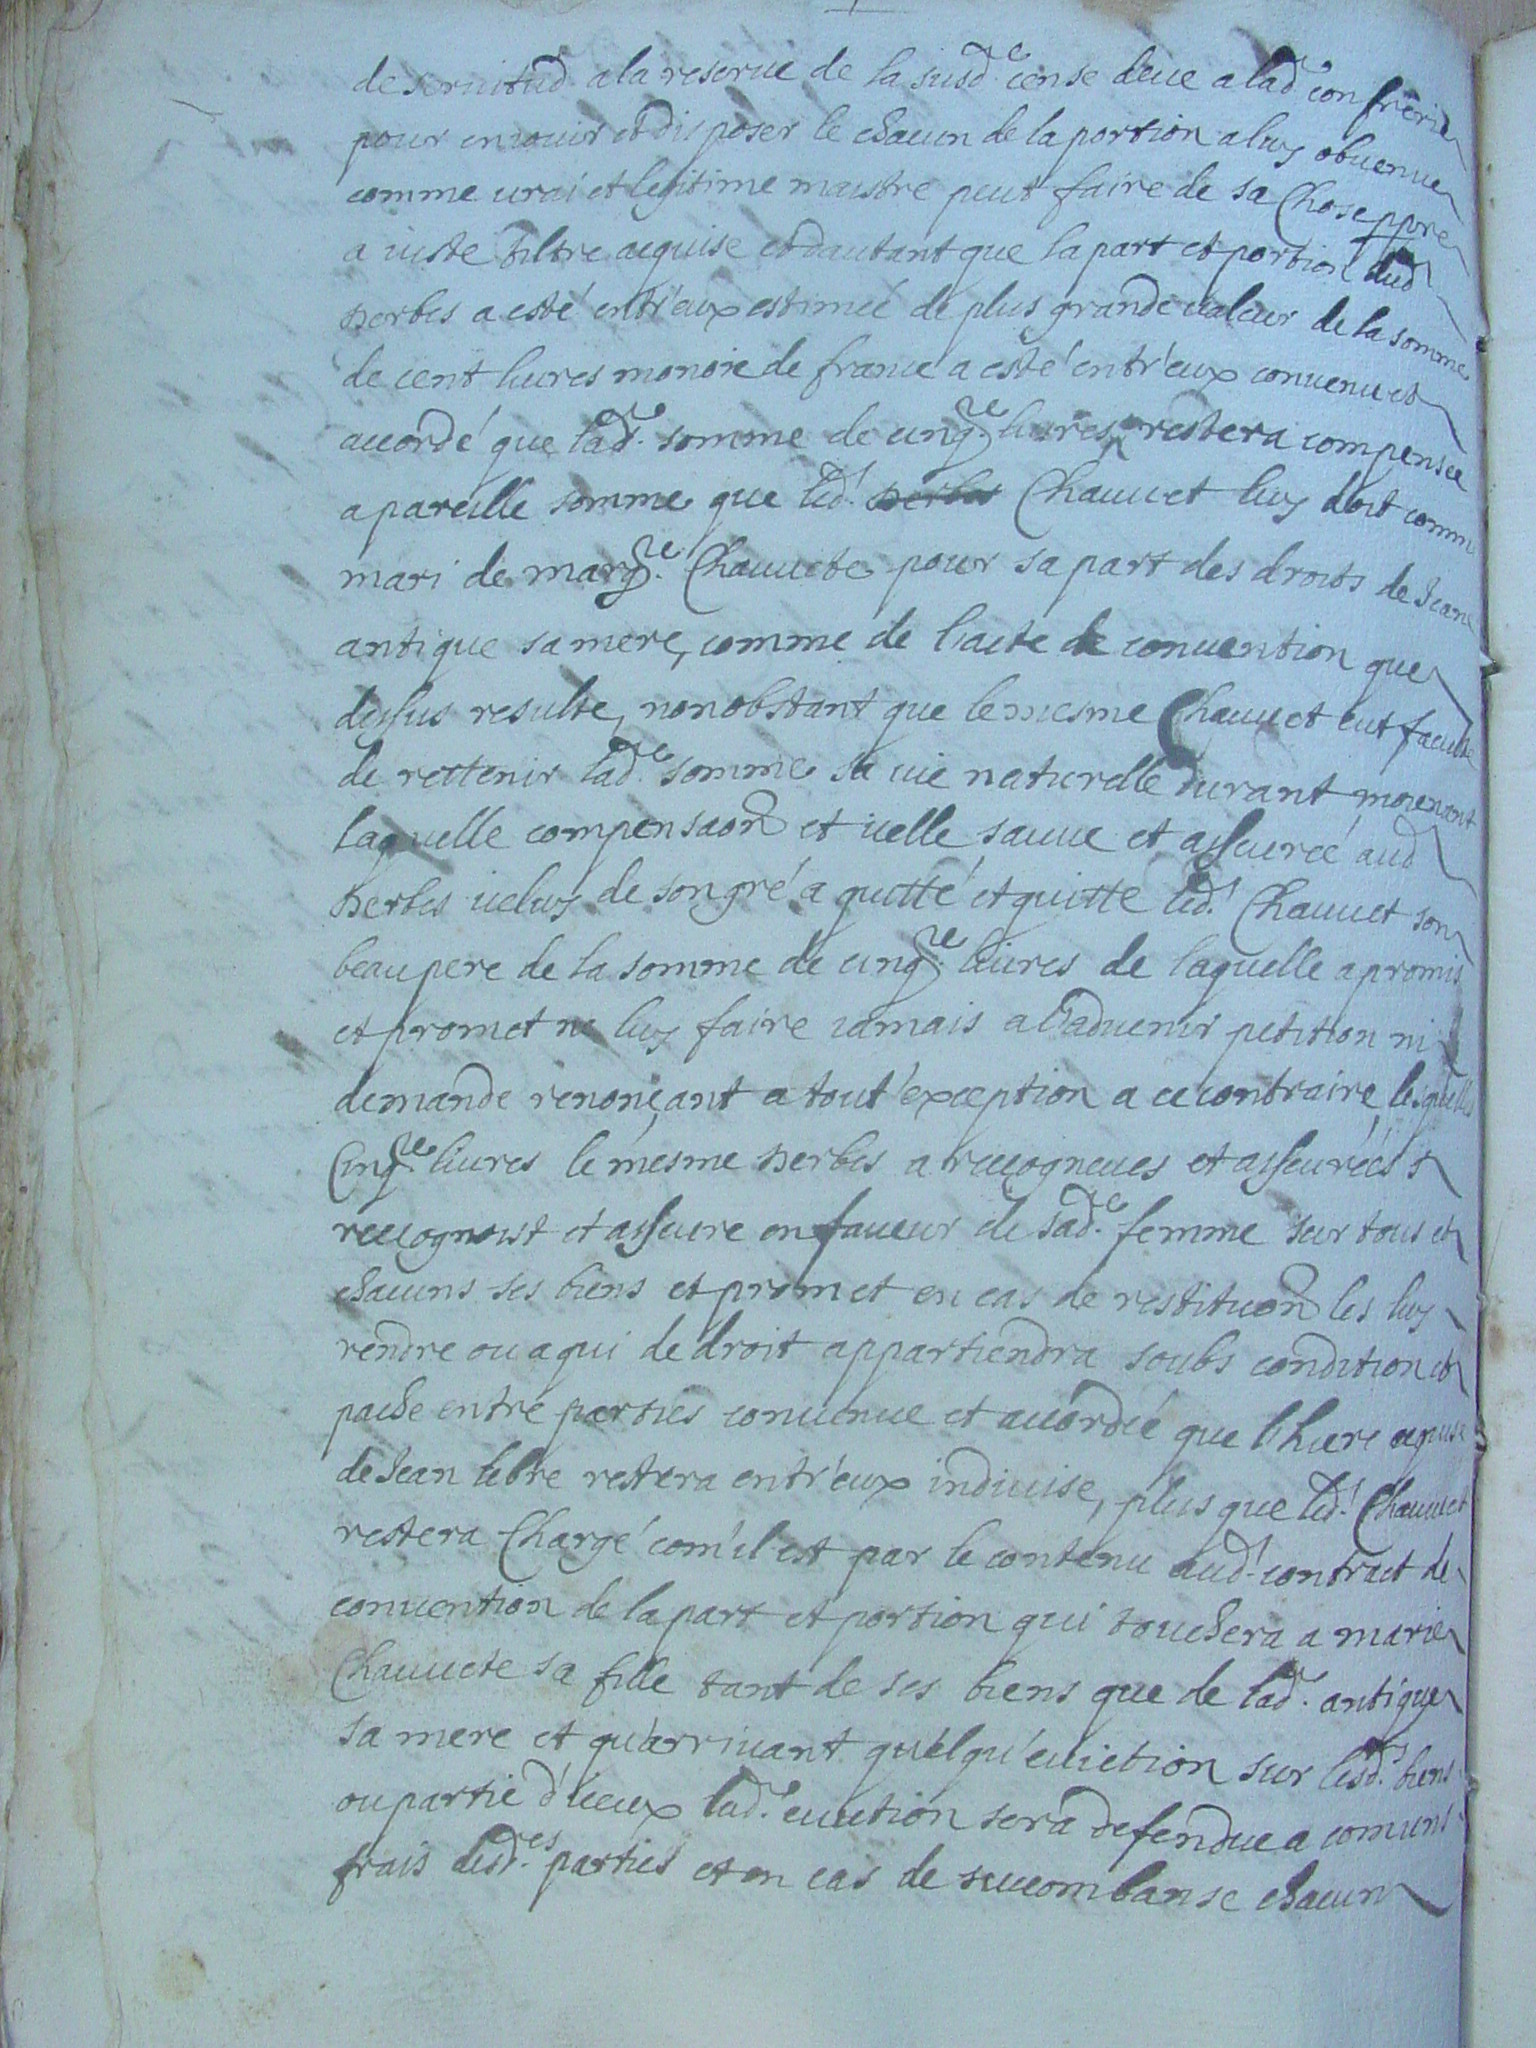 de servitud a la reserve de la susd.e cense deue a lad.e confrerie
pour en jouir et disposer le chacun de la portion a luy obvenue
comme vrai et legitime maistre peut faire de sa chose ppre
a juste tiltre acquise et dautant que la part et portion dud
Derbes a esté entr'eux estimée de plus grande valeur de la somme
de cent livres monoie de france a esté entr'eux convenu et
accordé que lad.e somme de cinq.te livres restera compensée
a pareille somme que led.t Derbes Chauvet luy doit comme
mari de marg.te Chauvete pour sa part des droits de Jeane
antique sa mere, comme de l'acte de convention que
dessus resulte, nonobstant que le mesme Chauvet eut faculté
de rettenir lad.e somme sa vie naturelle durant, moienant
laquelle compensaon et icelle sauve et asseurée aud
Derbes iceluy de son gré a quitté et quitte led.t Chauvet son
beaupere de la somme de cinq.te livres de laquelle a promis
et promet ne luy faire jamais a l'advenir petition ni
demande renonçant a tout'exception a ce contraire, lesquelles
Cinq.te livres le mesme Derbes a recogneues et asseurées
recognoist et asseure en faveur de sad.e femme sur tous et
chacuns ses biens et promet en cas de restituon les luy
rendre ou a qui de droit appartiendra soubs condition et
pache entre parties convenue et accordée que l'hiere aquise
de Jean lebre restera entr'eux indivise, plus que led.t Chauvet
restera Chargé com'il est par le contenu aud.t contract de
convention de la part et portion qui touchera a marie
Chauvete sa fille tant de ses biens que de lad.e antique
sa mere et qu'arrivant quelqu'eviction sur lesd.ts biens
ou partie d'iceux lad.e eviction sera defendue a comuns
frais desd.es parties et en cas de succombanse chacun